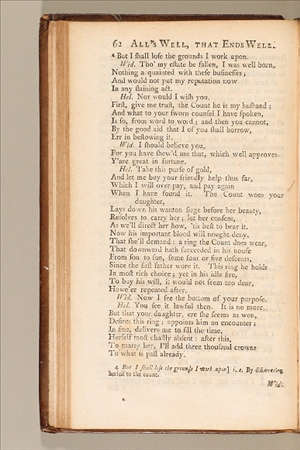 62 ALL'S WELL, THAT ENDS WELL.
4 But I ſhall loſe the grounds I work upon.
Wid. Tho' my eſtate be fallen, I was well born,
Nothing a quainted with theſe buſineſſes;
And would not put my reputation now
In any ſtaining act.
Hel. Nor would I wiſh you.
Firſt, give me truſt, the Count he is my huſband;
And what to your ſworn counſel I have ſpoken,
Is ſo, from word to word; and then you cannot,
By the good aid that I of you ſhall borrow,
Err in beſtowing it.
Wid. I ſhould believe you,
For you have ſhew'd me that, which well approves
Y'are great in fortune.
Hel. Take this purſe of gold,
And let me buy your friendly help thus far,
Which I will over-pay, and pay again
When I have found it. The Count woes your
daughter,
Lays down his wanton ſiege before her beauty,
Reſolves to carry her; let her conſent,
As we'll direct her how, 'tis beſt to bear it.
Now his important blood will nought deny,
That ſhe'll demand: a ring the Count does wear,
That downward hath ſucceeded in his houſe
From ſon to ſon, ſome four or five deſcents,
Since the firſt father wore it. This ring he holds
In moſt rich choice; yet in his idle fire,
To buy his will, it would not ſeem too dear,
Howe'er repented after.
Wid. Now I ſee the bottom of your purpoſe.
Hel. You ſee it lawful then. It is no more,
But that your daughter, ere ſhe ſeems as won,
Deſires this ring; appoints him an encounter;
In fine, delivers me to fill the time,
Herſelf moſt chaſtly abſent: after this,
To marry her, I'll add three thouſand crowns
To what is paſt already.
4 But I ſhall loſe the grounds I work upon] i. e. By diſcovering
herſelf to the count.
Wid.